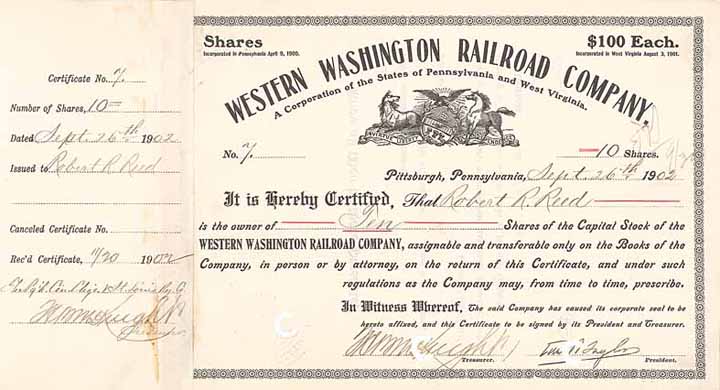 Certificate No. 7.
Number of Shares, 10
Dated Sept. 26th 1902
Issued to Robert R Reed
Canceled Certificate No.
Rec'd Certificate, 11/20 1902
Treasurer
Shares
Incorporated in Pennsylvania April 9, 1900.
$100 Each.
Incorporated in West Virginia August 3, 1901.
WESTERN WASHINGTON RAILROAD COMPANY,
A Corporation of the States of Pennsylvania and West Virginia.
No. 7.
10 Shares.
Pittsburgh, Pennsylvania, Sept. 26th 1902
It is Hereby Certified, That Robert R. Reed
is the owner of Ten Shares of the Capital Stock of the
WESTERN WASHINGTON RAILROAD COMPANY, assignable and transferable only on the Books of the
Company, in person or by attorney, on the return of this Certificate, and under such
regulations as the Company may, from time to time, prescribe.
In Witness Whereof, The said Company has caused its corporate seal to be
hereto affixed, and this Certificate to be signed by its President and Treasurer.
Treasurer.
President.